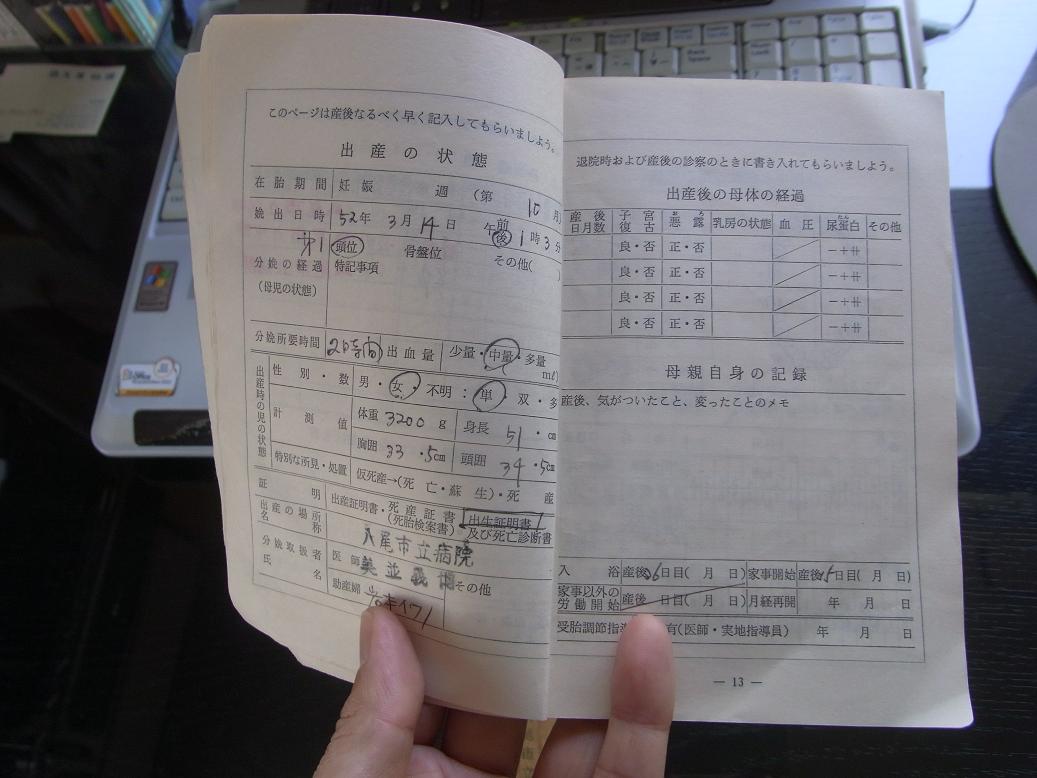 このページは産後なるべく早く記入してもらいましよう。
出産の状態
在胎期間 妊娠 週 (第 10 月
娩出日時 52年 3月 14日 午 前 後 1時 3分
頭位 骨盤位 その他( )
分娩の経過 特記事項
(母児の状態)
分娩所要時間 2時間 出血量 少量・中量・多量
mℓ
出産時の児の状態
性別・数 男・女・不明:単・双・多
計測値 体重 3200 g 身長 51 . cm
胸囲 33 .5cm 頭囲 34 .5cm
特別な所見・処置 仮死産→(死亡・蘇生)・死産
証明 出産証明書・死産証書(死胎検案書) 出生証明書及び死亡診断書
出産の場所 名称 八尾市立病院
分娩取扱者 氏名 医師 美並義博 その他
助産婦
退院時および産後の診察のときに書き入れてもらいましよう。
出産後の母体の経過
産後日月数 子宮復古 悪露 乳房の状態 血圧 尿蛋白 その他
良・否 正・否 ー+卄
良・否 正・否 ー+卄
良・否 正・否 ー+卄
良・否 正・否 ー+卄
母親自身の記録
産後、気がついたこと、変ったことのメモ
入浴 産後 日目( 月 日) 家事開始 産後 日目( 月 日)
家事以外の労働開始 産後 日目( 月 日) 月経再開 年 月 日
受胎調節指 有(医師・実地指導員) 年 月 日
— 13 —